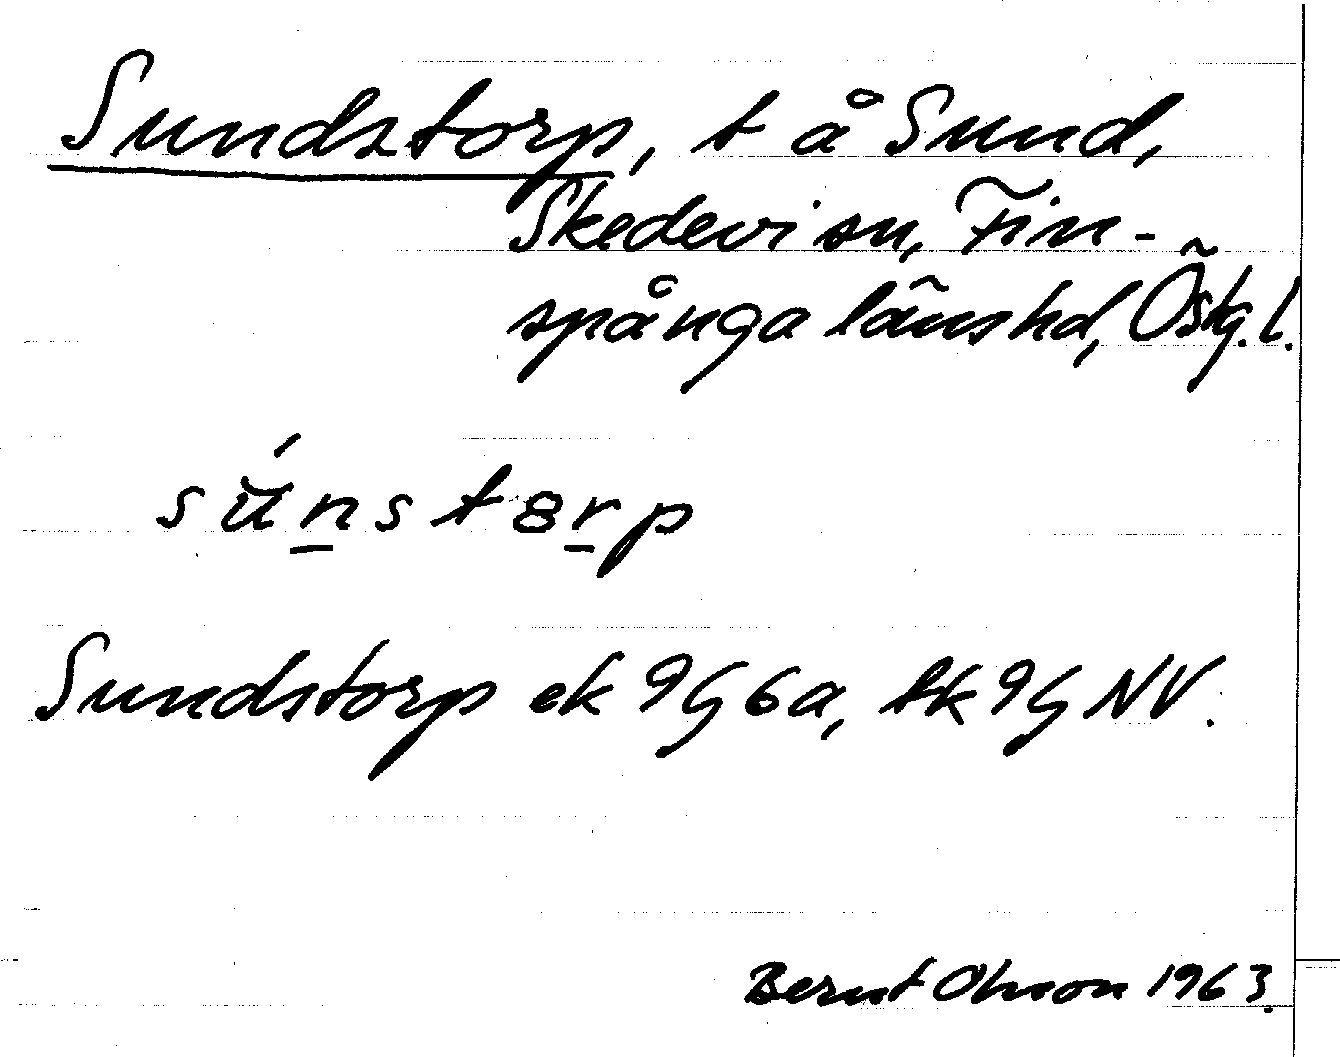 Sundstorp, t å Sund,
Skedevi sn, Fin-
spånga länshd, Östg. l.
sú̆n̲st8r̲p
Sundstorp ek 9G6a, tk 9G NV.
Bernt Olsson 1963.